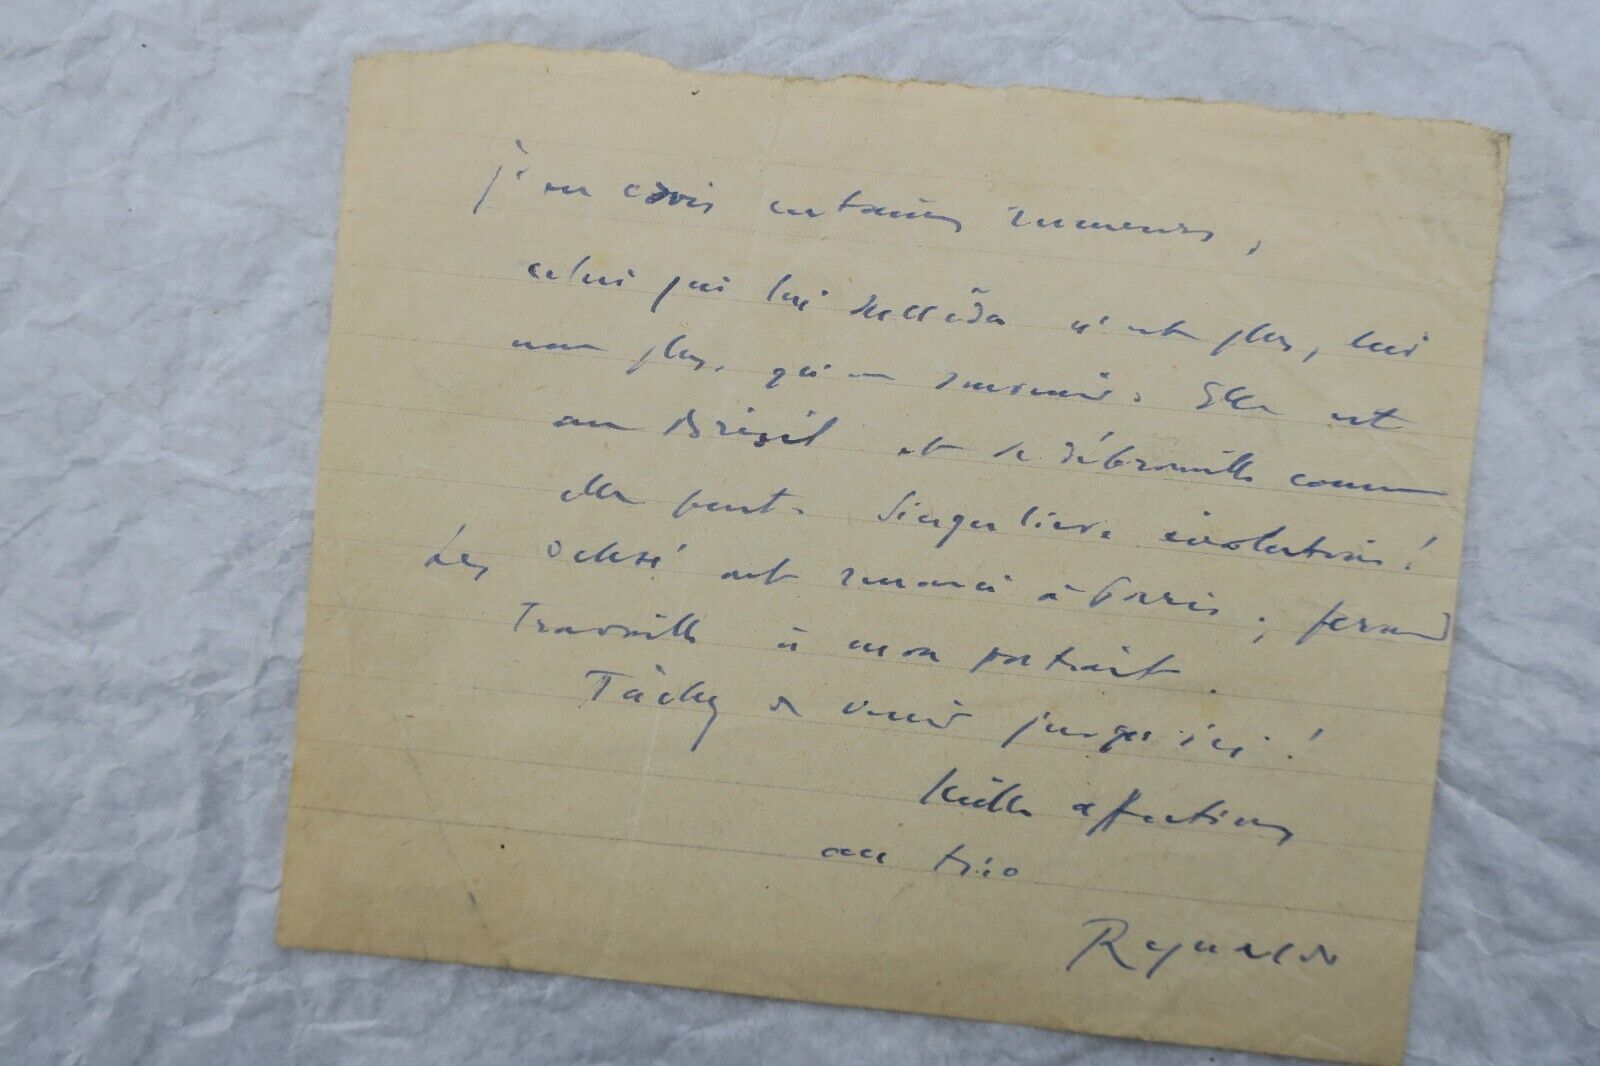 j'en crois certaines rumeurs,
celui qui lui succéda n'est plus, lui
non plus, qu'un souvenir. Elle est
au Brésil et se débrouille comme
elle peut. Singulière évolution!
Les Ochsé ont remonté à Paris; fernand
travaille à mon portrait.
Tâchez de venir jusqu'ici!
Mille affections
au trio
Reynaldo